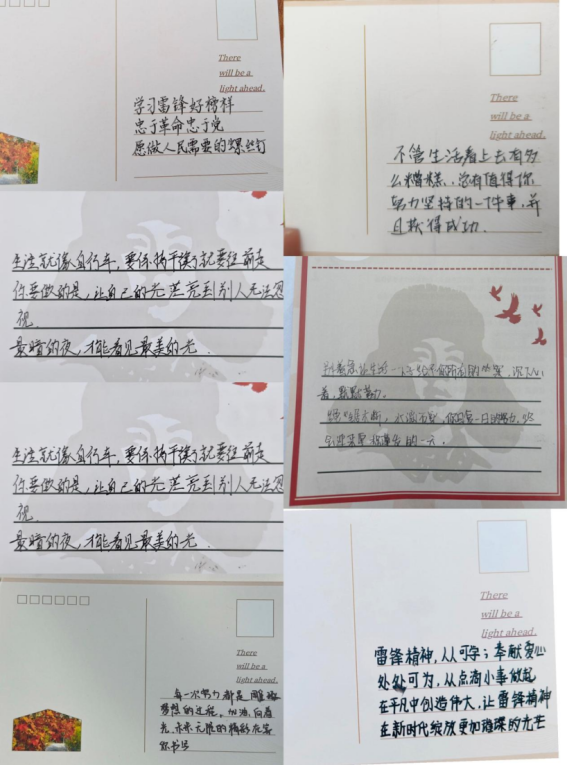 There
will be a
light ahead.
学习雷锋好榜样
忠于革命忠于党
愿做人民需要的螺丝钉
There
will be a
light ahead.
不管生活看上去有多
么糟糕,总有值得你
努力坚持的一件事,并
且获得成功.
生活就像自行车,要保持平衡就要往前走
你要做的是,让自己的光芒亮到别人无法忽
视.
最暗的夜,才能看见最美的光.
别着急,让生活
着,默默努力.
生活就像自行车,要保持平衡就要往前走
你要做的是,让自己的光芒亮到别人无法忽
视.
最暗的夜,才能看见最美的光.
There
will be a
light ahead.
每一次努力都是
梦想的过程,加油,向着
光,未来无限的精彩在等
There
will be a
light ahead.
雷锋精神,人人可学;奉献爱心
处处可为,从点滴小事做起
在平凡中创造伟大,让雷锋精神
在新时代绽放更加璀璨的光芒